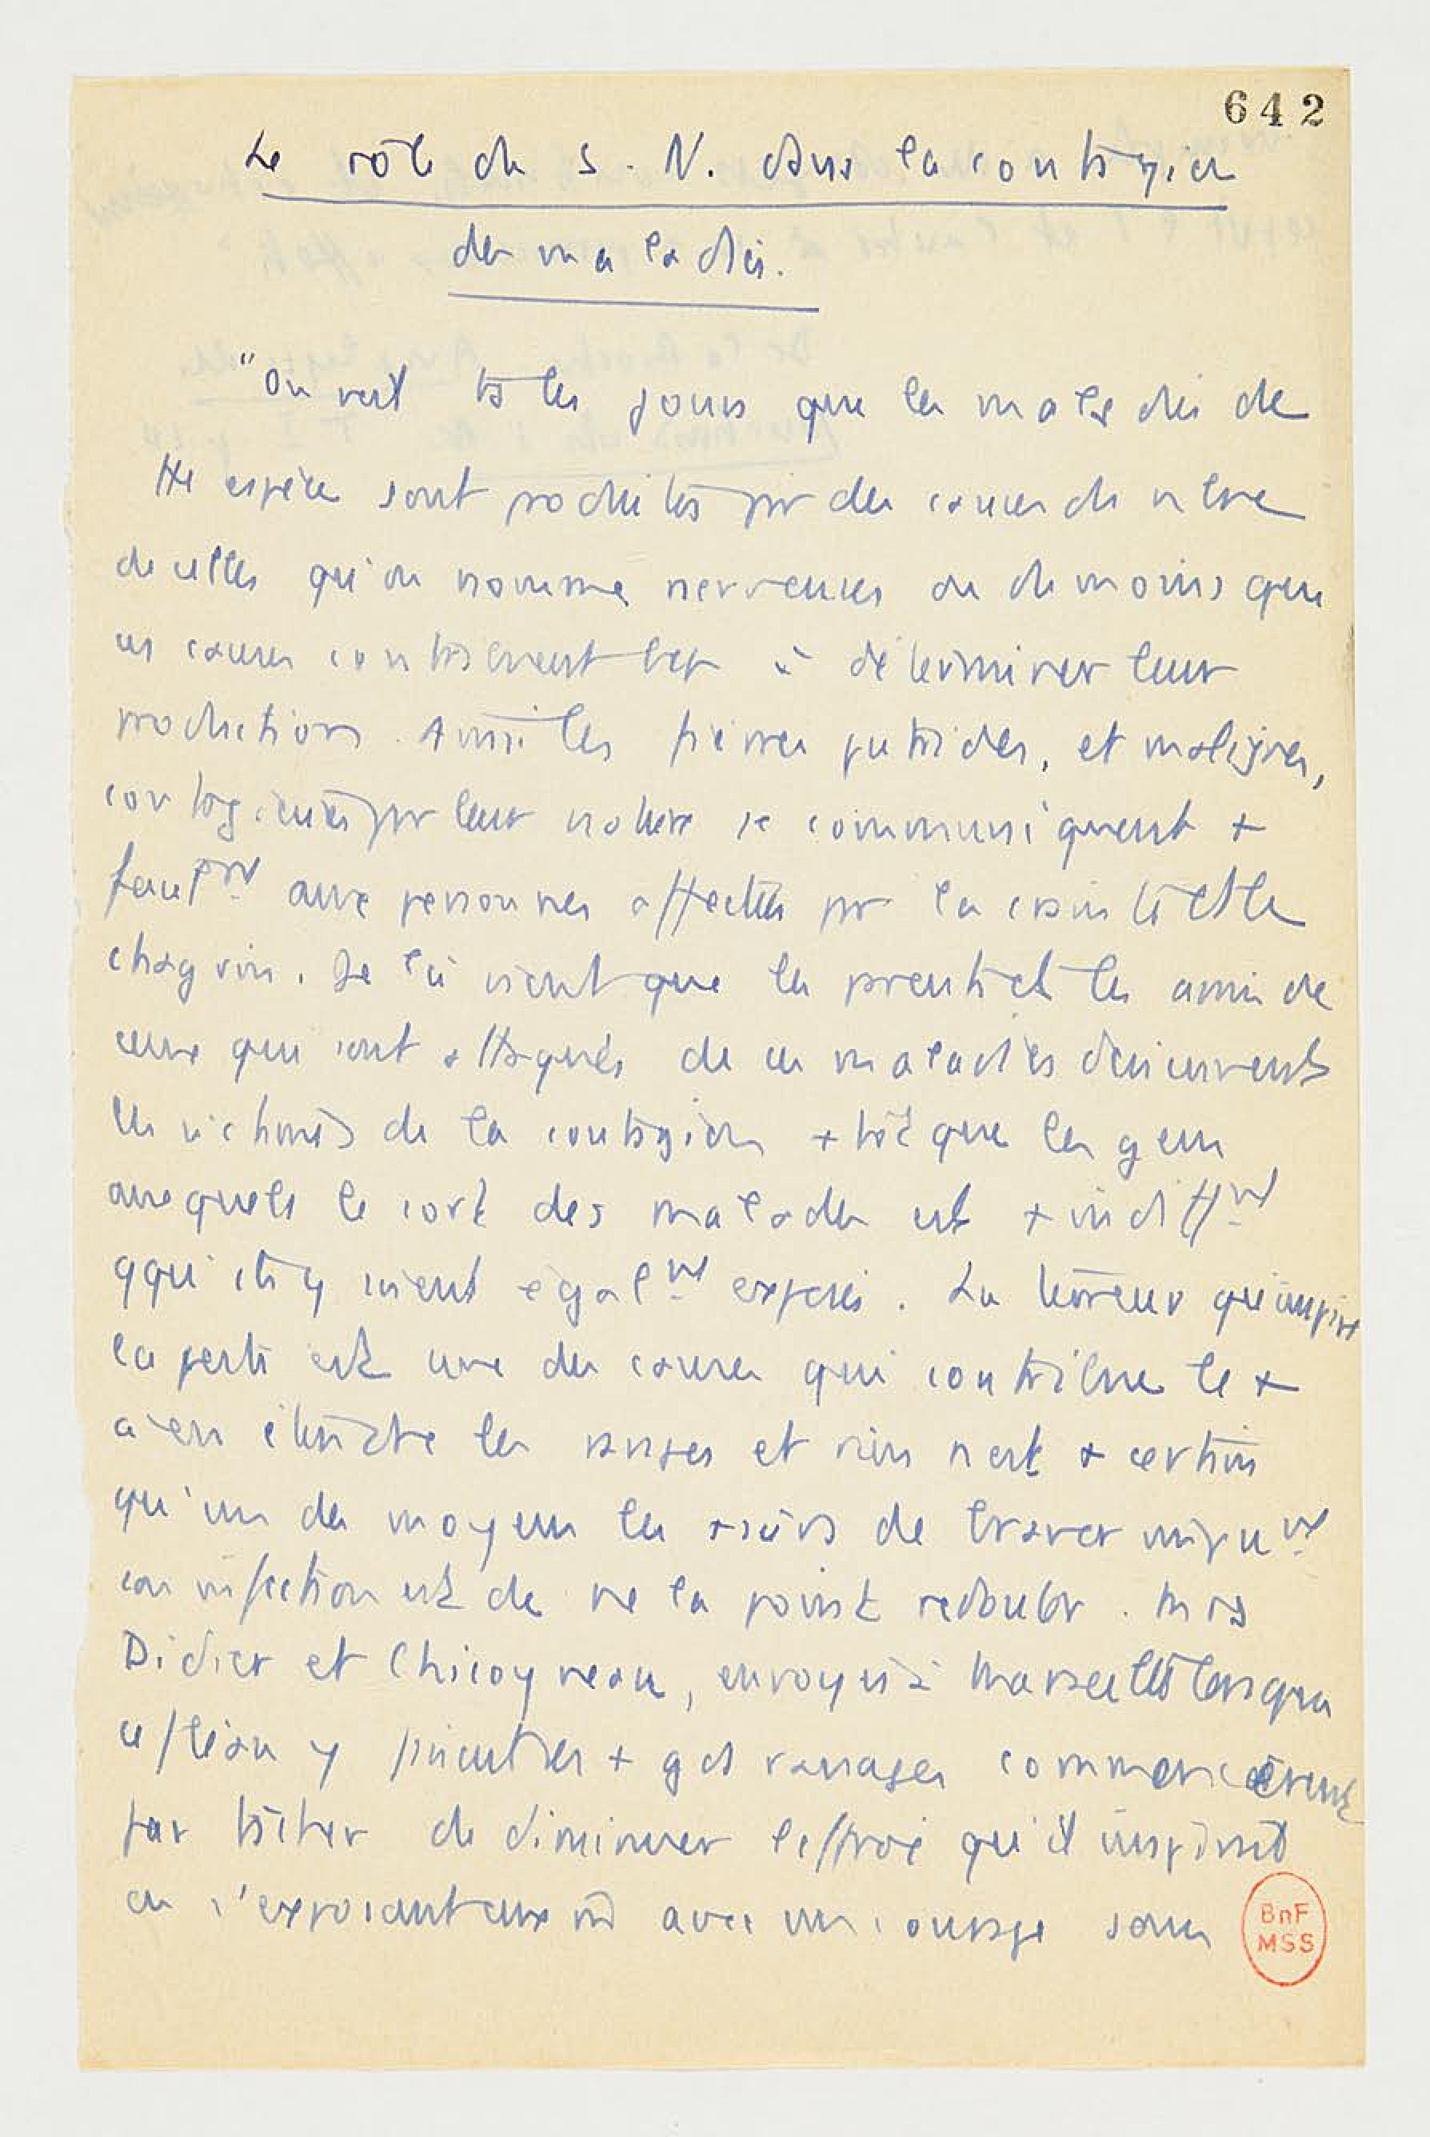 642
Le rôle du S. N. dans la contagion
des maladies.
"On voit ts les jours que les maladies de
tte espèce sont produites par des causes du ntre
de celles qu'on nomme nerveuses ou du moins que
ces causes contribuent bcp à déterminer leur
production. Ainsi les fièvres putrides, et malignes,
contagieuses par leur nature se communiquent +
facilemt aux personnes affectées par la crainte et le
chagrin. De là vient que les parents et les amis de
ceux qui sont attaqués de ces maladies deviennent
les victimes de la contagion + tôt que les gens
auxquels le sort des malades est + indifft
qqu'ils y soient égalmt exposés. La terreur qu'inspire
la peste est une des causes qui contribue le +
à en étendre les ravages et rien n'est + certain
qu'un des moyens les + sûrs de braver impunt
son infection est de ne la point redouter. Mrs
Didier et Chicoyneau, envoyés à Marseille lorsque
ce fléau y fit ses + gds ravages commencèrent
par tâcher de diminuer l'effroi qu'il inspirait
en s'exposant eux m avec un courage sans
BnF
MSS